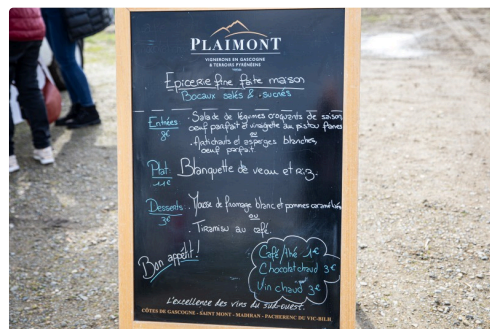 PLAIMONT
VIGNERONS EN GASCOGNE
& TERROIRS PYRÉNÉENS
Epicerie fine faite maison
Bocaux salés & sucrés
Entrées
8€
. Salade de légumes croquants de saison
oeuf parfait et vinaigrette au pistou
ou
. Artichauts et asperges blanches,
oeuf parfait.
Plat
11€
Blanquette de veau et riz.
Desserts
3€
. Mousse de fromage blanc et pommes caramélisées
ou
. Tiramisu au café.
Bon appétit!
Café/thé 1€
Chocolat chaud 3€
Vin chaud 3€
L'excellence des vins du sud-ouest.
CÔTES DE GASCOGNE - SAINT MONT - MADIRAN - PACHERENC DU VIC-BILH